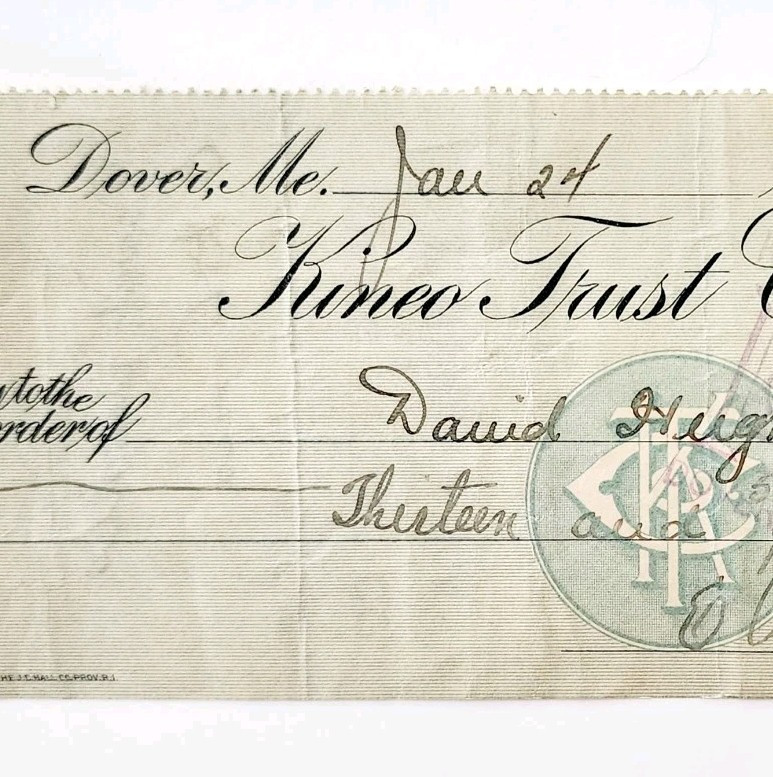 Dover, Me. Jan 24
Kineo Trust
to the
order of David
Thirteen and
THE J.C. HALL CO. PROV. R.I.